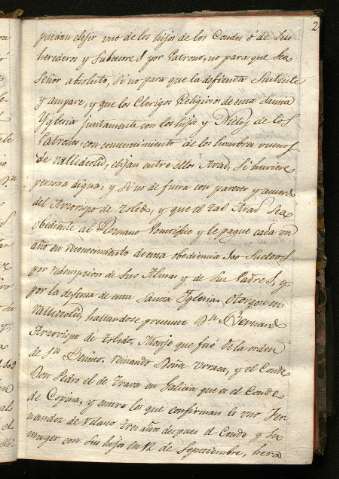 2
puedan elejir uno de los hijos de los Condes ó de sus
herederos y Subcesores por Patrono, no para que sea
Señor absoluto, sino para que la defienda sustente
y ampare, y que los Clerigos Religiosos de esta Santa
Yglesia juntamente con los hijos y Nietos de los
Patronos con consentimiento de los hombres buenos
de Valladolid, elijan entre ellos Avad, si huviere
persona digna, y si no de fuera con parecer y acuerdo
del Arzovispo de Toledo, y que el tal Avad sea
obediente al Romano Pontifice y le pague cada un
año en reconocimiento de esta obediencia
por redempcion de sus Almas y de sus Padres, y
por la defensa de esta Santa Yglesia. Otorgose en
Valladolid, hallandose presente Dn. Bernardo
Arzovispo de Toledo, Monje que fué de la orden
de Sn. Benito, reinando Doña Urraca, y el Conde
Don Pedro el de Trava en Galicia que es el Conde
de Coruña, y entre los que confirman es uno Fer-
nandez de Tres años despues el Conde y su
muger con sus hijos en 12 de Septiembre, hera